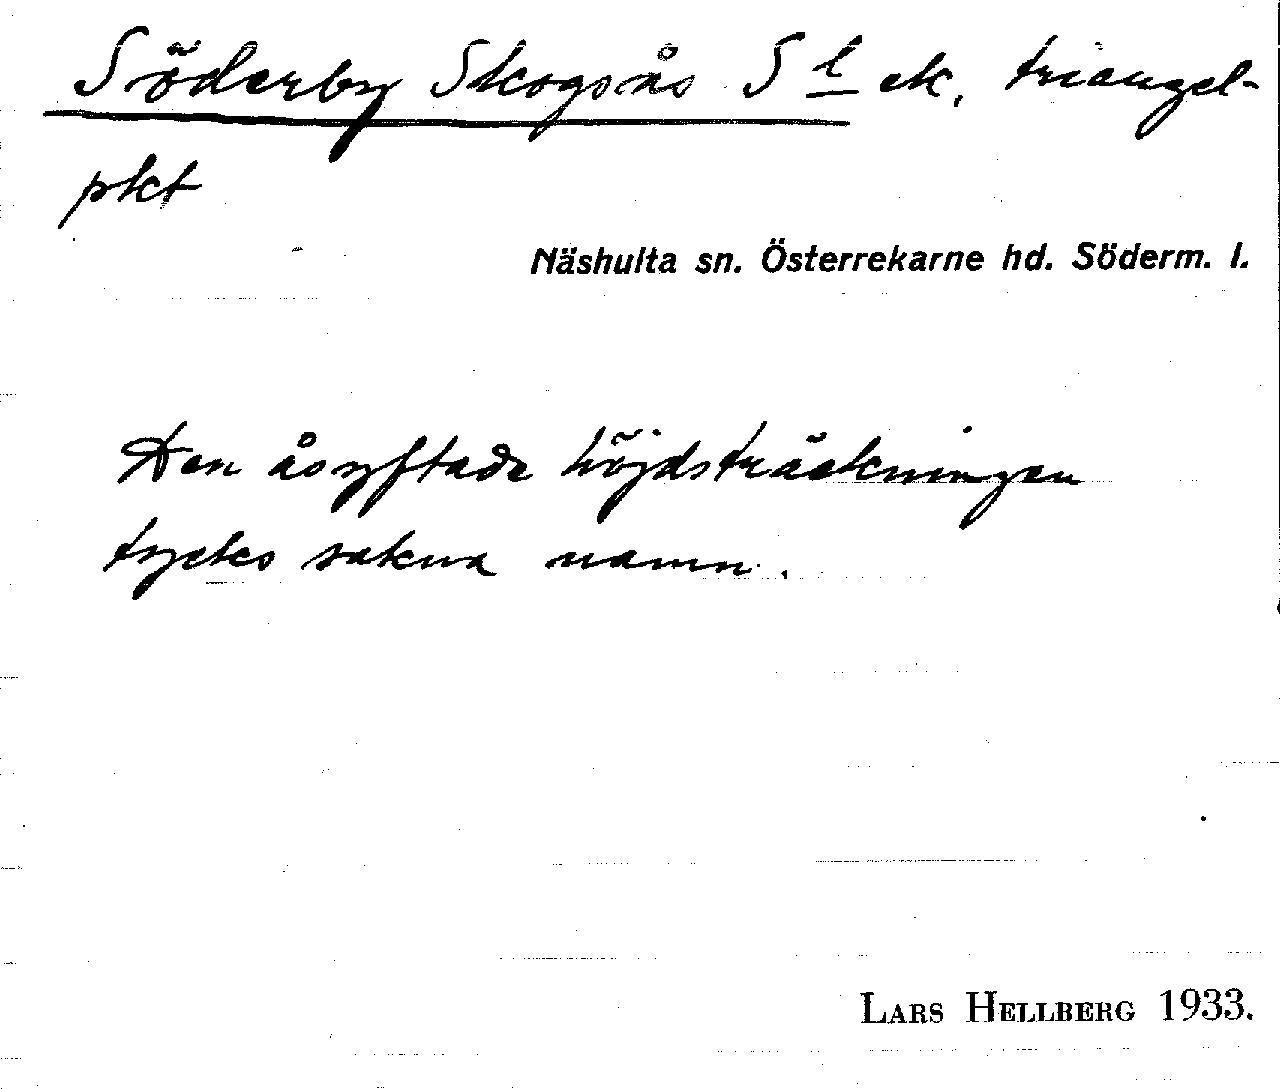 Söderby Skogsås S l ek. triangel-
pkt
Näshulta sn. Österrekarne hd. Söderm. l.
Den åsyftade höjdsträckningen
tycks sakna namn.
LARS HELLBERG 1933.